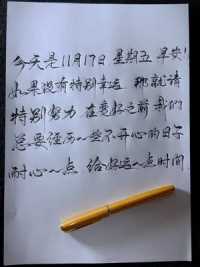 今天是11月17日 星期五 早安!
如果没有特别幸运 那就请
特别努力 在变好之前 我们
总要经历一些不开心的日子
耐心一点 给好运一点时间